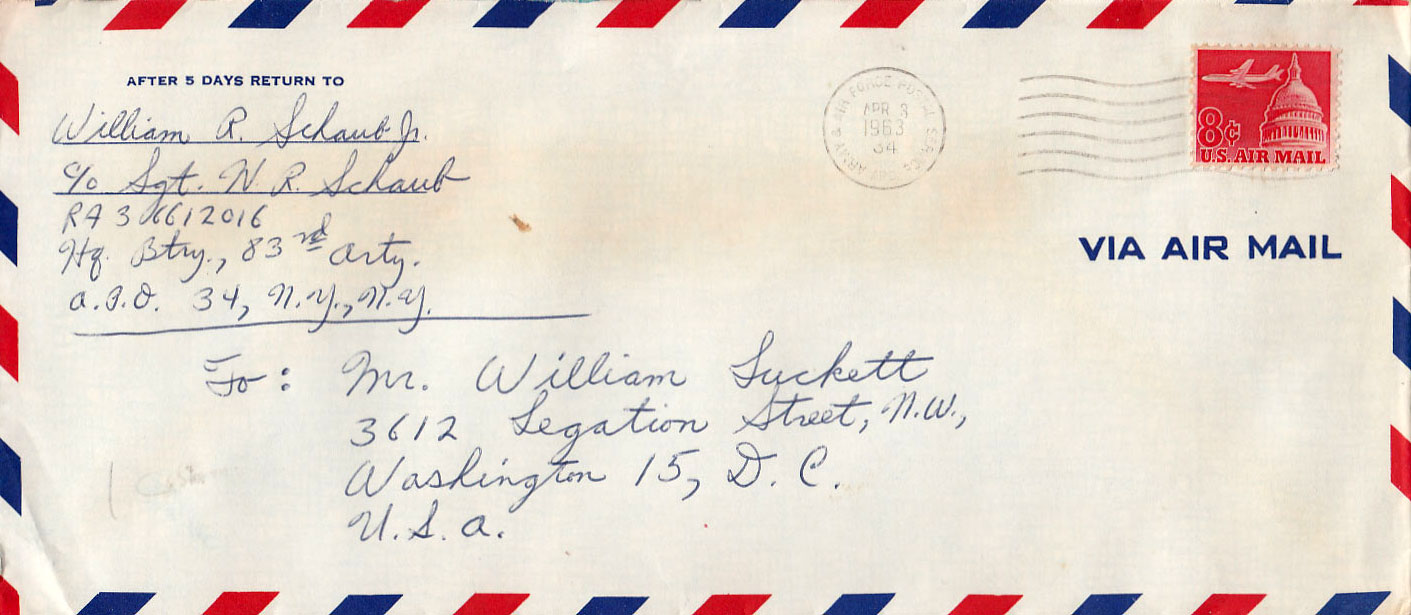 AFTER 5 DAYS RETURN TO
William R. Schaub Jr.
c/o Sgt. W R. Schaub
RA 3 6612016
Hq. Btry., 83rd Arty.
A.P.O. 34, N.Y., N.Y.
ARMY & AIR FORCE POSTAL SERVICE
APR 3
1963
34
8¢
U.S. AIR MAIL
VIA AIR MAIL
To: Mr. William Luckett
3612 Legation Street, N.W.,
Washington 15, D. C.
U.S.A.